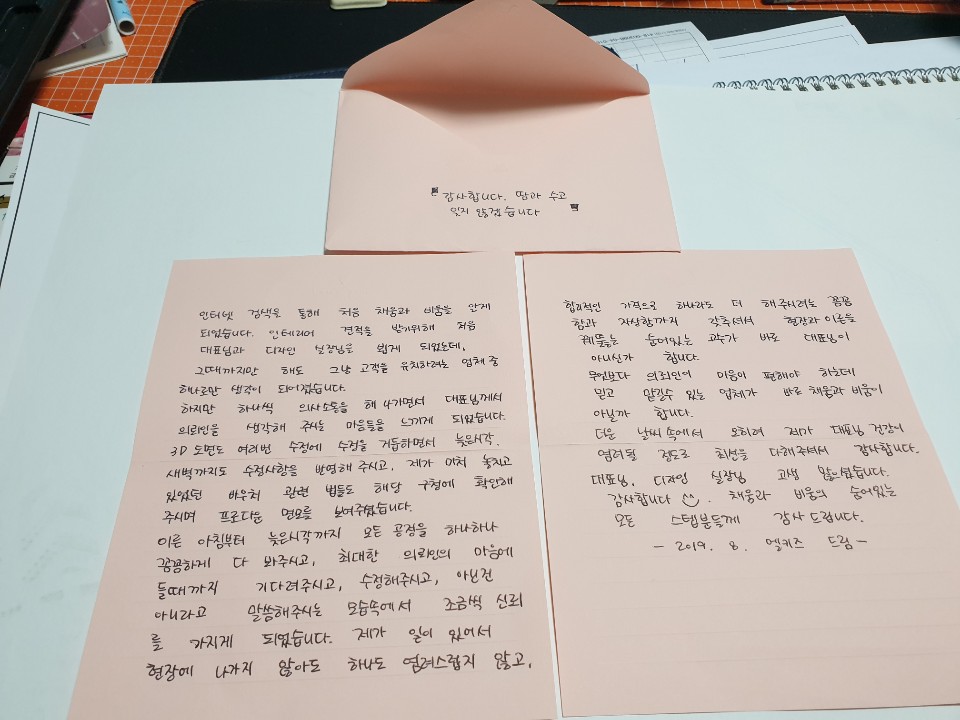 "감사합니다. 땀과 수고
잊지 않겠습니다"
인터넷 검색을 통해 처음 채움과 비움을 알게
되었습니다. 인테리어 견적을 받기위해 처음
대표님과 디자인 실장님을 뵙게 되었는데,
그때까지만 해도 그냥 고객을 유치하려는 업체 중
하나로만 생각이 되어졌습니다.
하지만 하나씩 의사소통을 해 나가면서 대표님께서
의뢰인을 생각해 주시는 마음들을 느끼게 되었습니다.
3D 도면도 여러번 수정에 수정을 거듭하면서 늦은시각,
새벽까지도 수정사항을 반영해 주시고, 제가 미처 놓치고
있었던 바우처 관련 법들도 해당 구청에 확인해
주시며 프로다운 면모를 보여주셨습니다.
이른 아침부터 늦은시각까지 모든 공정을 하나하나
꼼꼼하게 다 봐주시고, 최대한 의뢰인의 마음에
들때까지 기다려주시고, 수정해주시고, 아닌건
아니라고 말씀해주시는 모습속에서 조금씩 신뢰
를 가지게 되었습니다. 제가 일이 있어서
현장에 나가지 않아도 하나도 염려스럽지 않고,
합리적인 가격으로 하나라도 더 해주시려는 꼼꼼
함과 자상함까지 갖추셔서 현장과 이론을
꿰뚫는 숨어있는 고수가 바로 대표님이
아니신가 합니다.
무엇보다 의뢰인의 마음이 편해야 하는데
믿고 맡길수 있는 업체가 바로 채움과 비움이
아닐까 합니다.
더운 날씨 속에서 오히려 제가 대표님 건강이
염려될 정도로 최선을 다해주셔서 감사합니다.
대표님, 디자인 실장님 고생 많으셨습니다.
감사합니다 . 채움과 비움의 숨어있는
모든 스텝분들께 감사 드립니다.
- 2019. 8. 엘키즈 드림 -